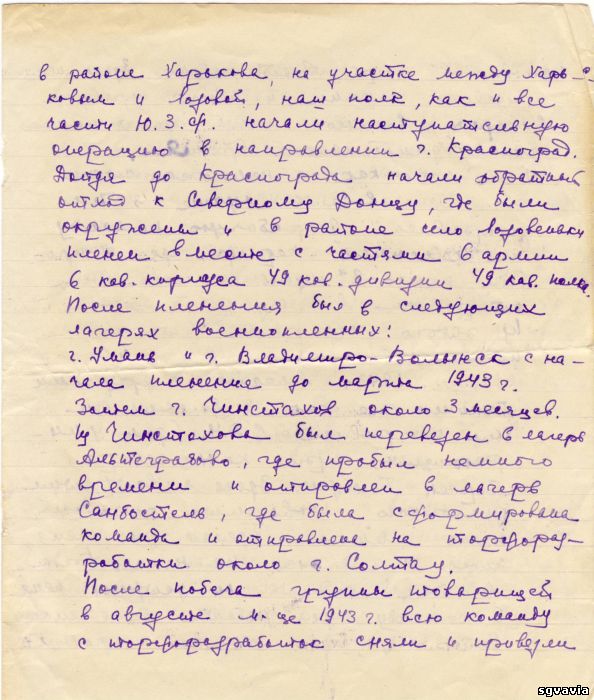 в районе Харькова, на участке между Харь-
ковым и Лозовой, наш полк, как и все
части Ю.З.ф. начали наступательную
операцию в направлении г. Красноград.
Дойдя до Краснограда начали обратный
отход к Северному Донцу, где были
окружены и в районе село Лозовеньки
пленен вместе с частями 6 армии
6 кав. корпуса 49 кав. дивизии 49 кав. полка.
После пленения был в следующих
лагерях военнопленных:
г. Умань и г. Владимиро-Волынск с на-
чала пленение до марта 1943 г.
Затем г. Чинстахов около 3 месяцев.
Из Чинстахова был переведен в лагерь
Альтеграбово, где пробыл немного
времени и отправлен в лагерь
Санбостель, где была сформирована
команда и отправлена на торфораз-
работки около г. Солтау.
После побега группы товарищей
в августе м-це 1943 г. всю команду
с торфоразработок сняли и привезли
sgvavia